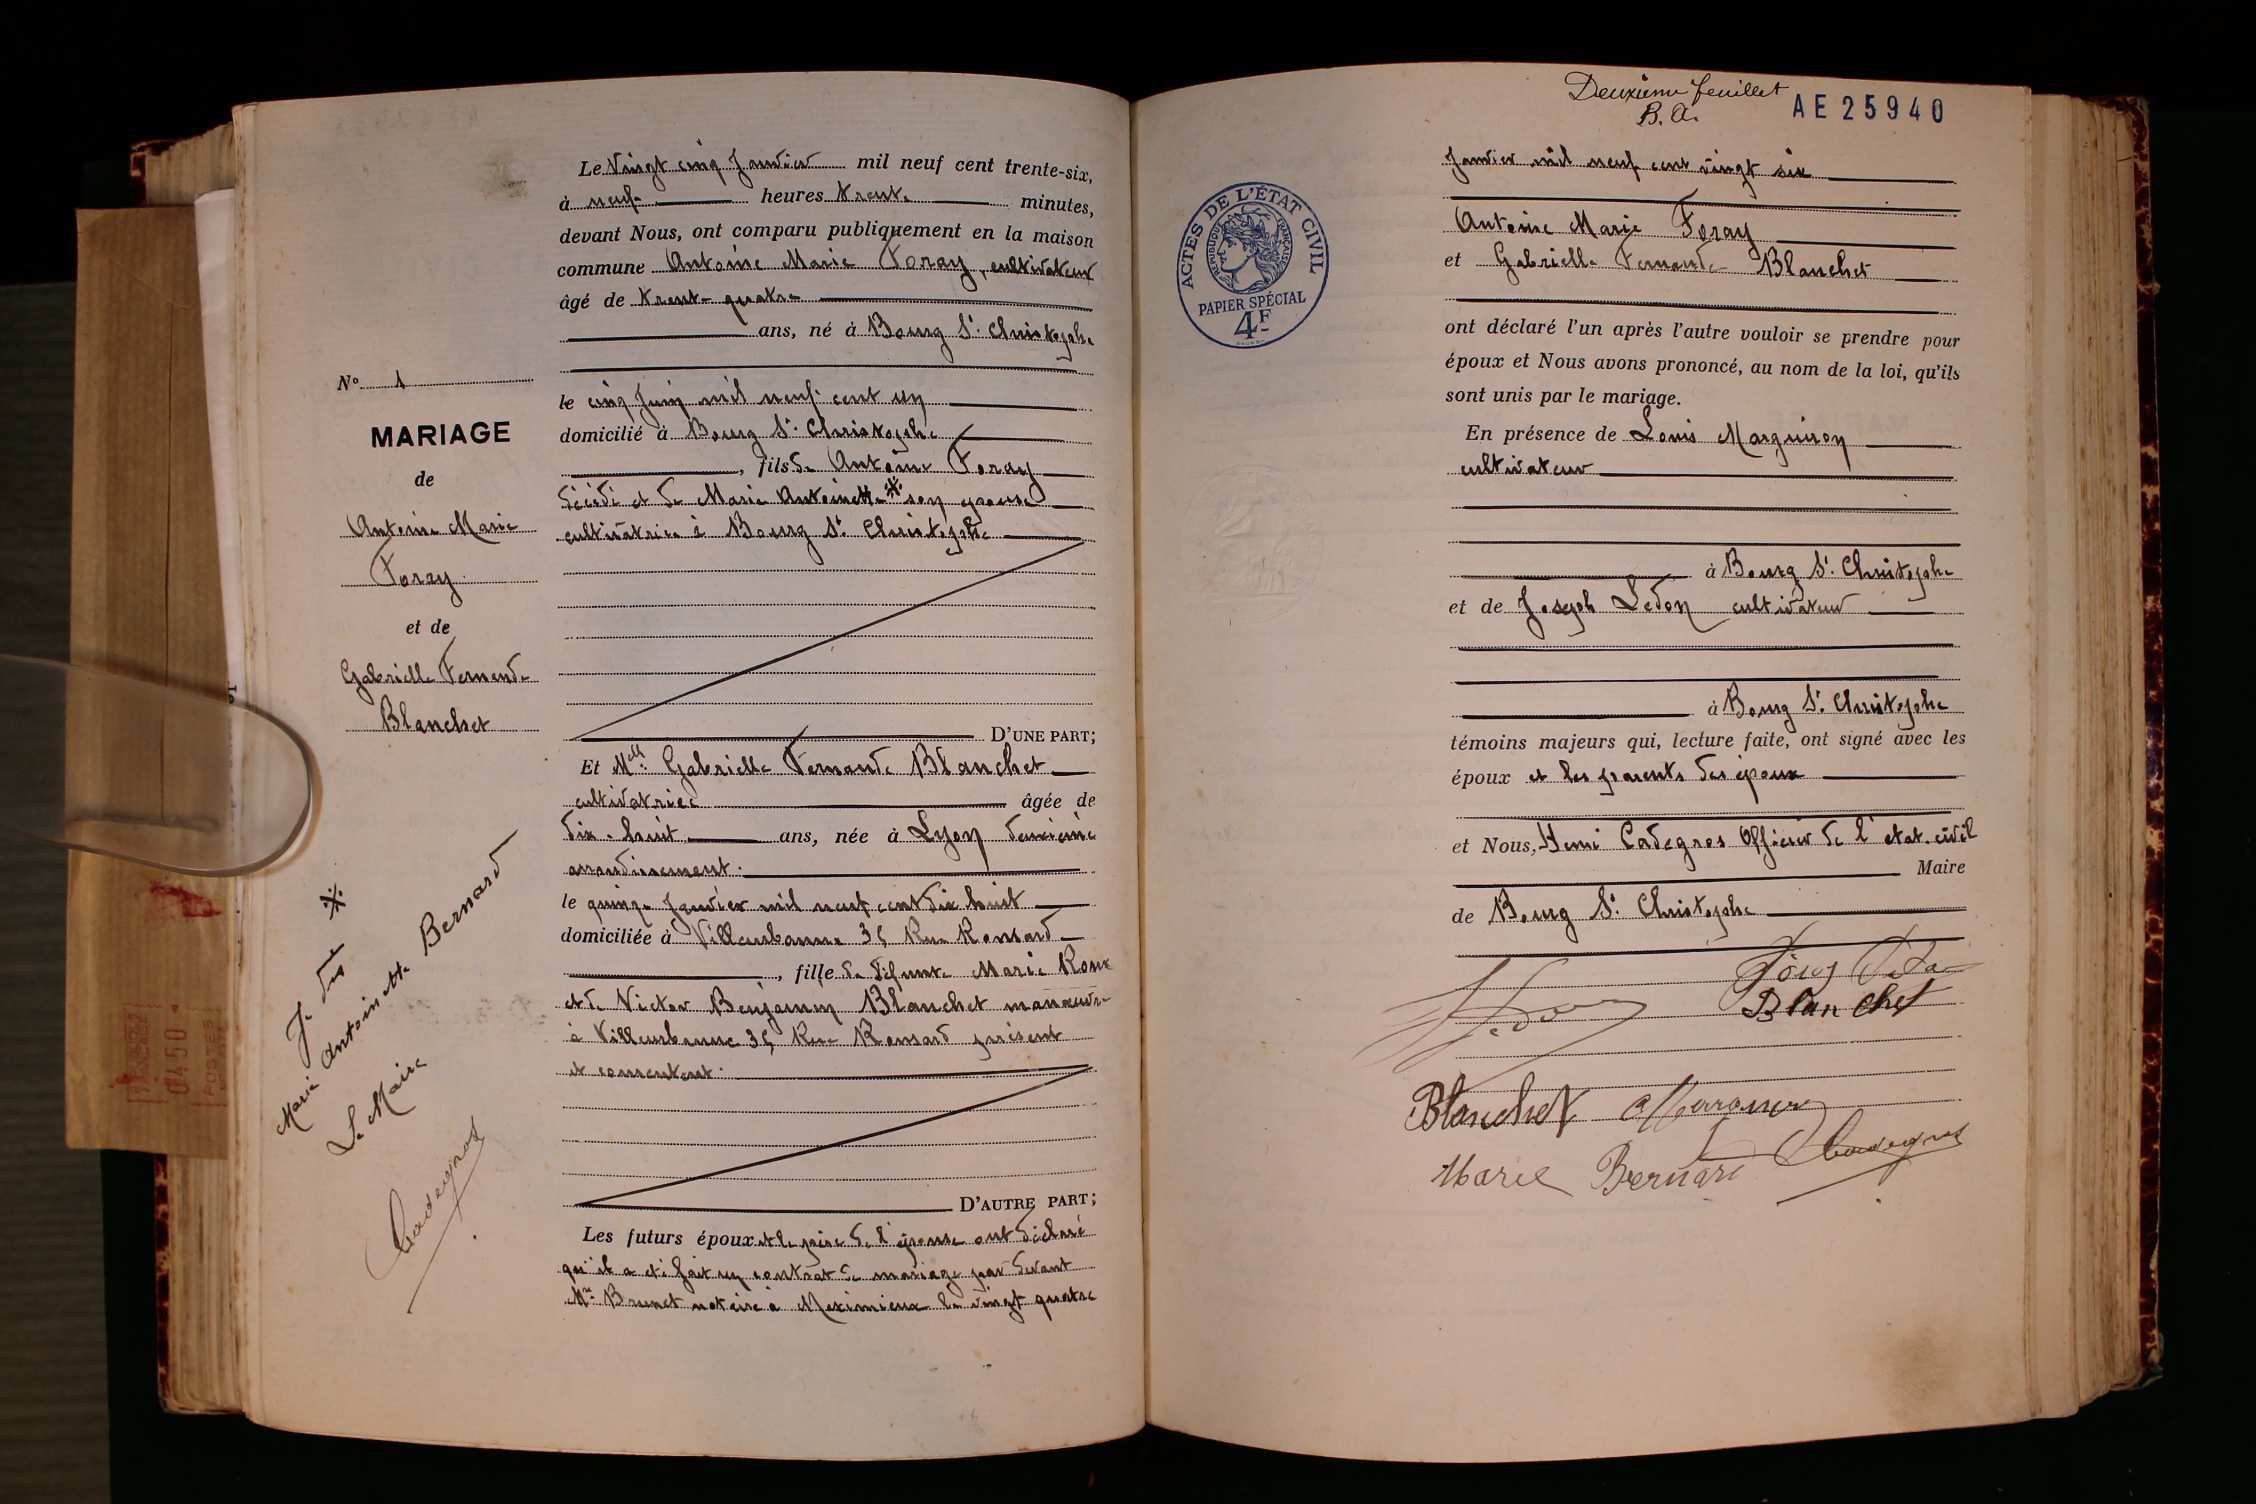 Le Vingt cinq Janvier mil neuf cent trente-six,
à neuf heures trente minutes,
devant Nous, ont comparu publiquement en la maison
commune Antoine Marie Foray, cultivateur
âgé de trente quatre
ans, né à Bourg St. Christophe
le cinq Juin mil neuf cent un
domicilié à Bourg St. Christophe
, fils de Antoine Foray
décédé et de Marie Antoinette * son épouse
cultivatrice à Bourg St. Christophe
D'UNE PART;
Et Melle Gabrielle Fernande Blanchet
cultivatrice âgée de
dix-huit ans, née à Lyon deuxième
arrondissement.
le quinze Janvier mil neuf cent dix huit
domiciliée à Villeurbanne 35 Rue Ronsard
, fille de défunte Marie Roux
et de Victor Benjamin Blanchet manœuvre
à Villeurbanne 35 Rue Ronsard présent
et consentent.
D'AUTRE PART;
Les futurs époux et le père de l'épouse ont déclaré
qu'il a été fait un contrat de mariage par devant
Me Brunet notaire à Meximieux le vingt quatre
No 1
MARIAGE
de
Antoine Marie
Foray
et de
Gabrielle Fernande
Blanchet
*
Je dis
Marie Antoinette Bernard
Le Maire
Cadegros
Deuxième feuillet
B. A.
AE 25940
ACTES DE L'ÉTAT CIVIL
RÉPUBLIQUE FRANÇAISE
PAPIER SPÉCIAL
4F
Janvier mil neuf cent vingt six
Antoine Marie Foray
et Gabrielle Fernande Blanchet
ont déclaré l'un après l'autre vouloir se prendre pour
époux et Nous avons prononcé, au nom de la loi, qu'ils
sont unis par le mariage.
En présence de Louis Marguiron
cultivateur
à Bourg St. Christophe
et de Joseph Ledon cultivateur
à Bourg St. Christophe
témoins majeurs qui, lecture faite, ont signé avec les
époux et les parents des époux
et Nous, Henri Cadegros Officier de l'etat-civil
Maire
de Bourg St. Christophe
Blanchet
Blanchet
Marie Bernard Cadegros
0450
POSTES